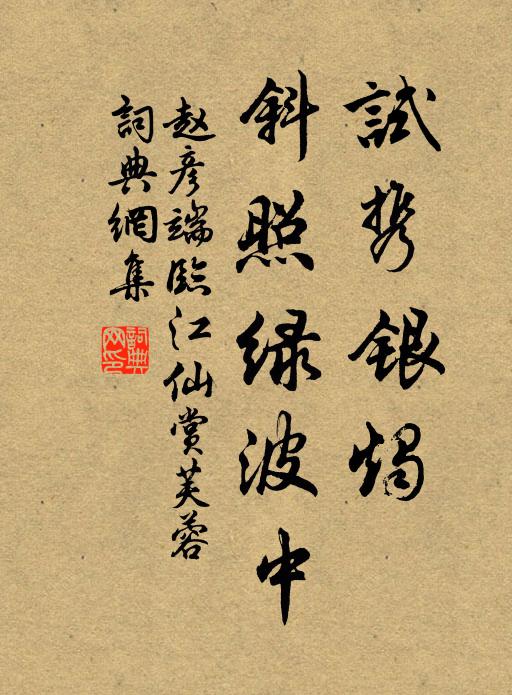 試携銀燭
斜照緑波中
赵彦端臨江仙赏芙蓉
詞典網集
詞典网印